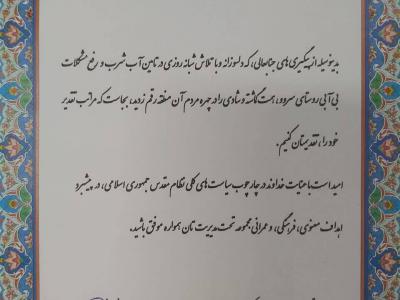 بدینوسیله از پیگیری های جنابعالی، که دلسوزانه و با تلاش شبانه روزی در تامین آب شرب و رفع مشکلات
بی آبی روستای سردو، همت گماشته و شادی را در چهره مردم آن منطقه رقم زدید، بجاست که مراتب تقدیر
خود را، تقدیمتان کنیم.
امید است با عنایت خداوند در چارچوب سیاست های کلی نظام مقدس جمهوری اسلامی، در پیشبرد
اهداف معنوی، فرهنگی، و عمرانی مجموعه تحت مدیریت تان همواره موفق باشید.